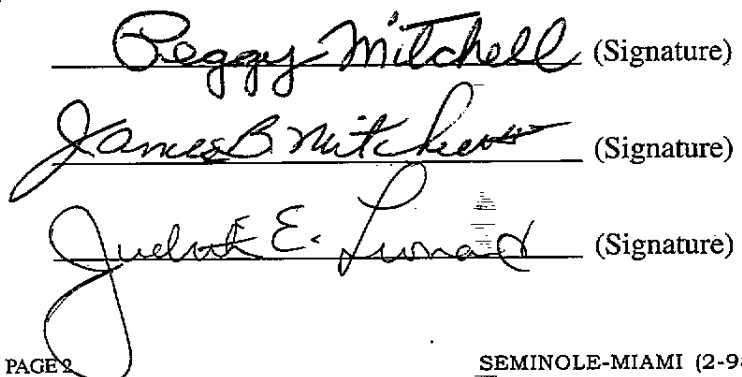 Peggy Mitchell (Signature)
James B. Mitchell (Signature)
E. (Signature)
PAGE 2 SEMINOLE-MIAMI (2-9